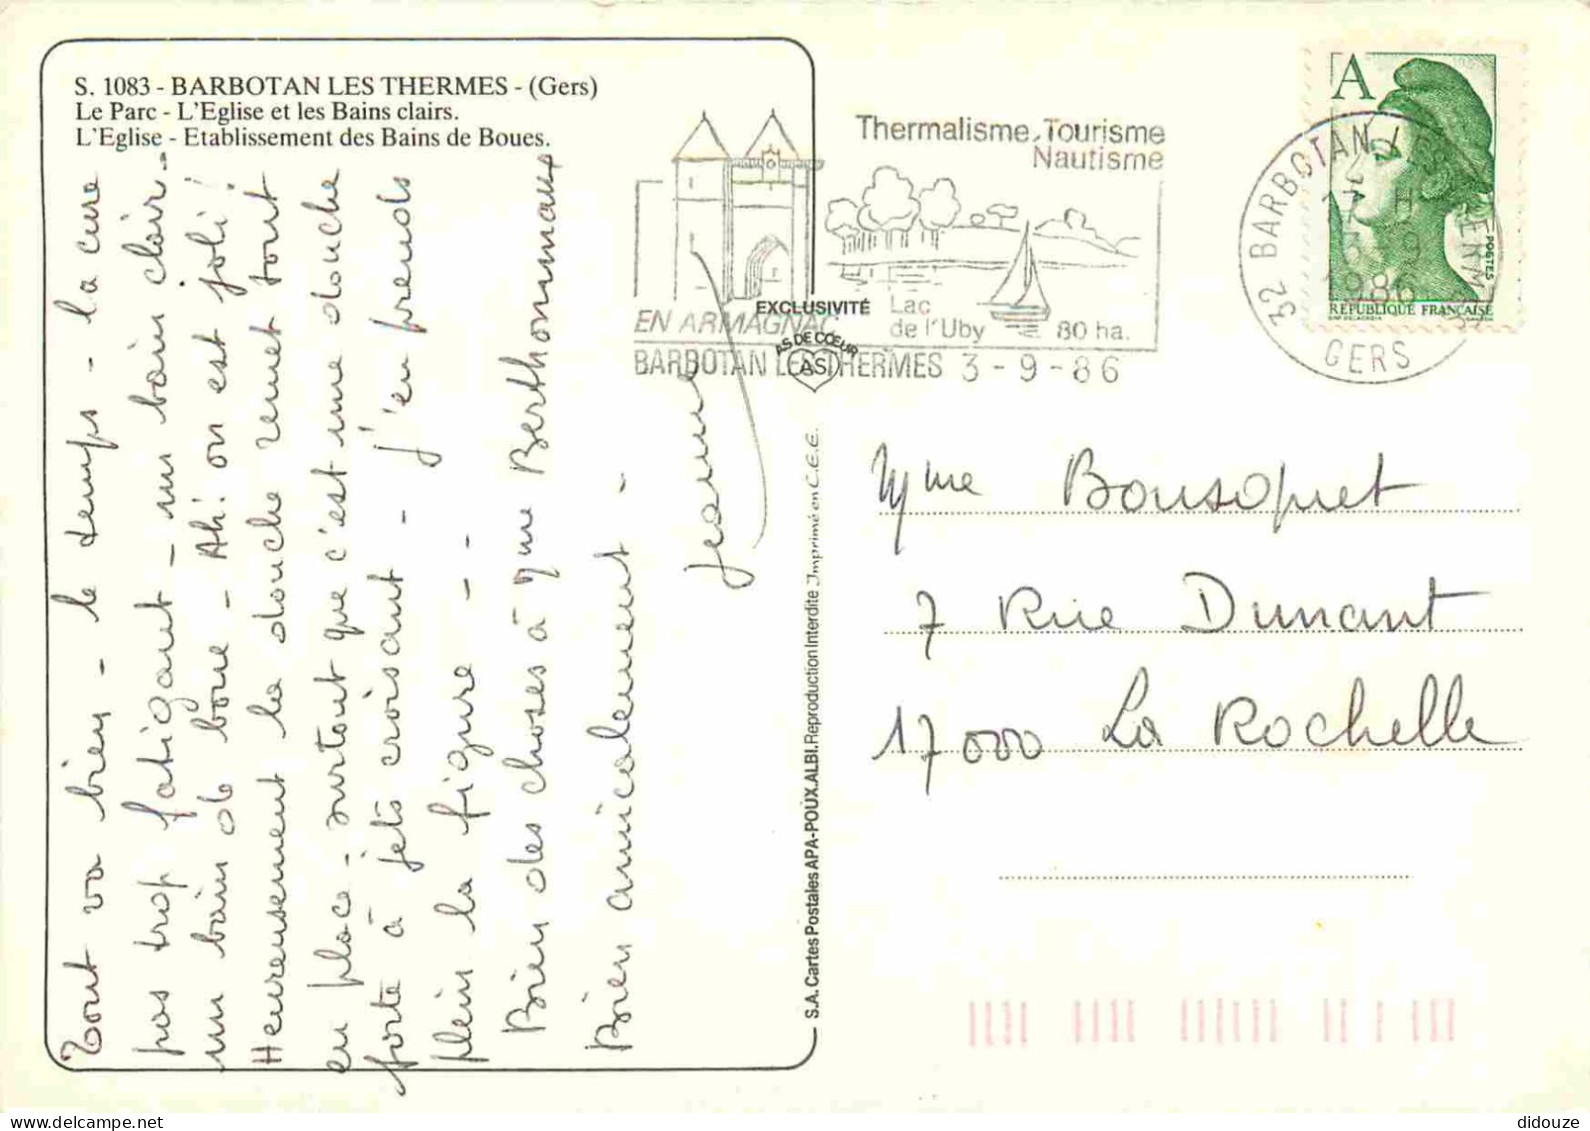 S. 1083 - BARBOTAN LES THERMES - (Gers)
Le Parc - L'Eglise et les Bains clairs.
L'Eglise - Etablissement des Bains de Boues.
Tout va bien - le temps - la cure
pas trop fatigant - un bain clair -
un bain de boue - Ah! on est joli!
Heureusement la douche remet tout
en place - surtout que c'est une douche
forte à jets croisant - j'en prends
plein la figure - -
Bien des choses à Mme Berthommaux
Bien amicalement -
Jeanne
Thermalisme. Tourisme
Nautisme
EN ARMAGNAC
Lac
de l'Uby
80 ha.
BARBOTAN LES THERMES 3 - 9 - 86
EXCLUSIVITÉ
AS DE CŒUR
AS
32 BARBOTAN LES THERMES
17 H
3 9
1986
GERS
A
POSTES
REPUBLIQUE FRANÇAISE
S.A. Cartes Postales APA-POUX.ALBI. Reproduction Interdite Imprimé en C.E.E.
Mme Bousoquet
7 Rue Dunant
17000 La Rochelle
didouze